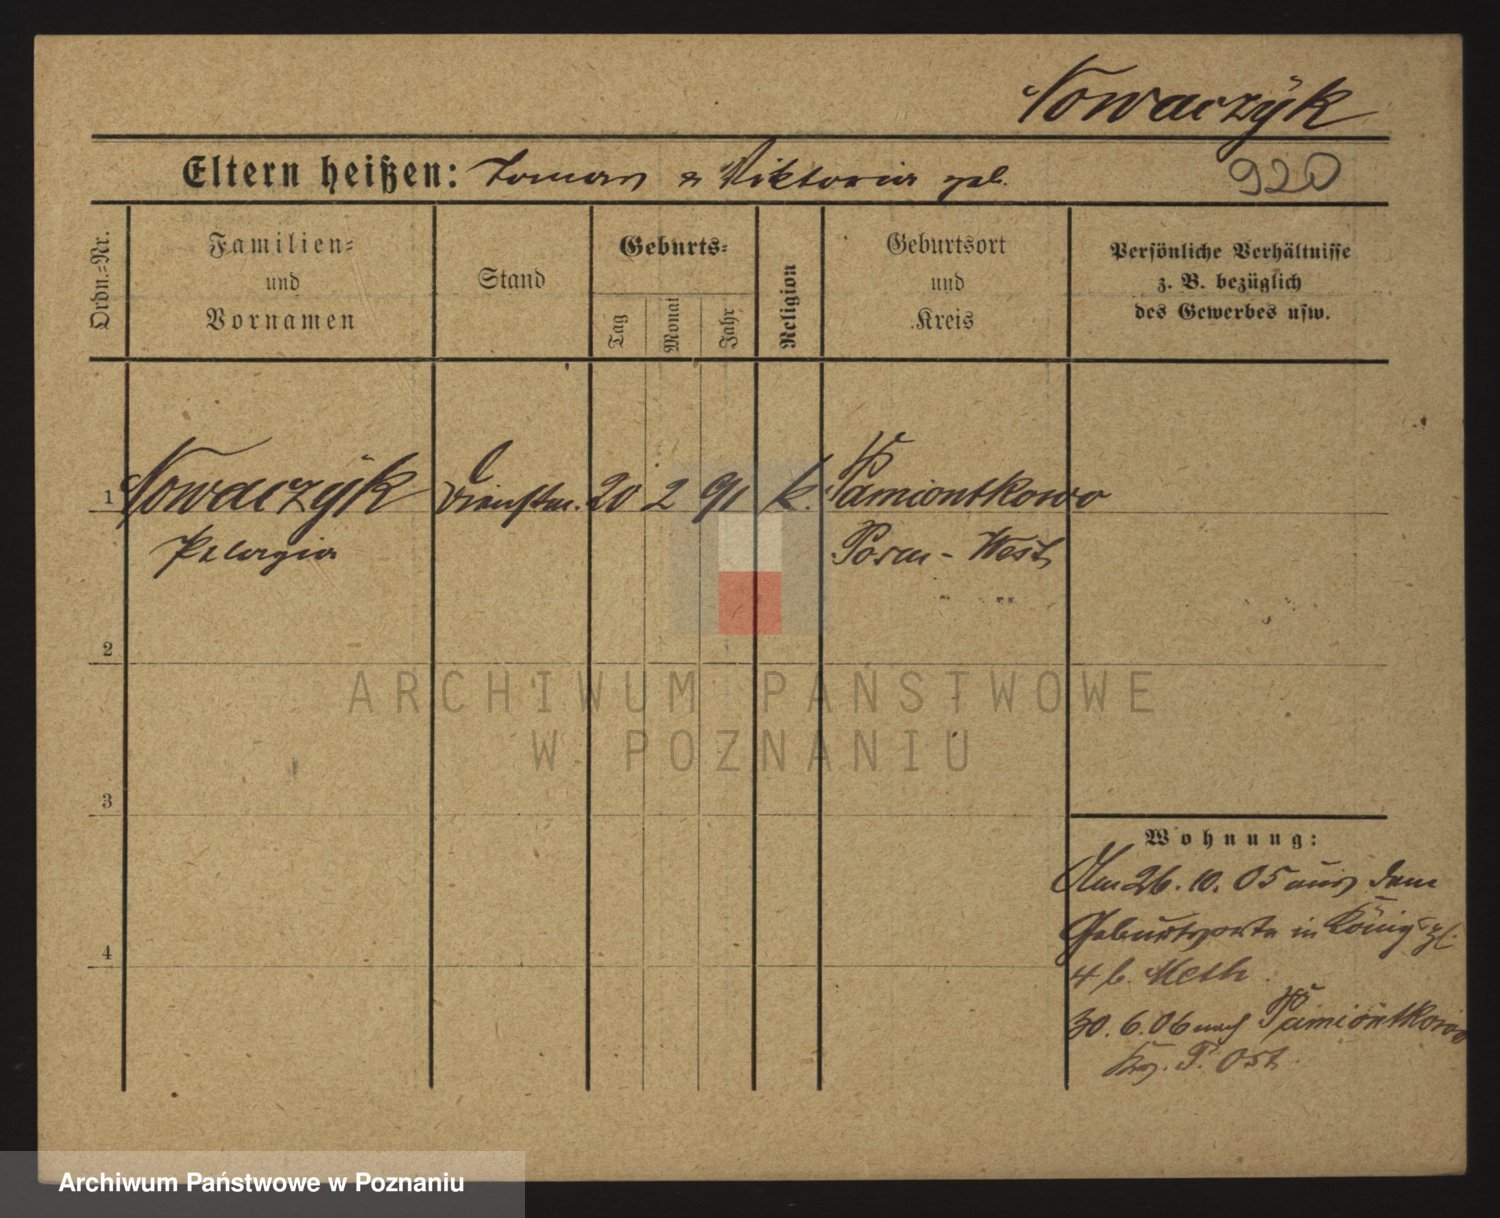 Nowaczÿk
Eltern heißen: Toman u Viktoria geb.
920
Ordn.-Nr.
Familien-
und
Vornamen
Stand
Geburts-
Tag
Monat
Jahr
Religion
Geburtsort
und
Kreis
Persönliche Verhältnisse
z. B. bezüglich
des Gewerbes usw.
1 Nowaczÿk Dienstm. 20 2 91 k. Pamiontkowo
Pelagia Posen-West
2
ARCHIWUM PAŃSTWOWE
W POZNANIU
3
Wohnung:
Am 26. 10. 05 aus dem
Geburtsorte in Königspl.
4 b. Meth.
30. 6. 06 nach Pamiontkowo
Krs. P. Ost.
4
Archiwum Państwowe w Poznaniu